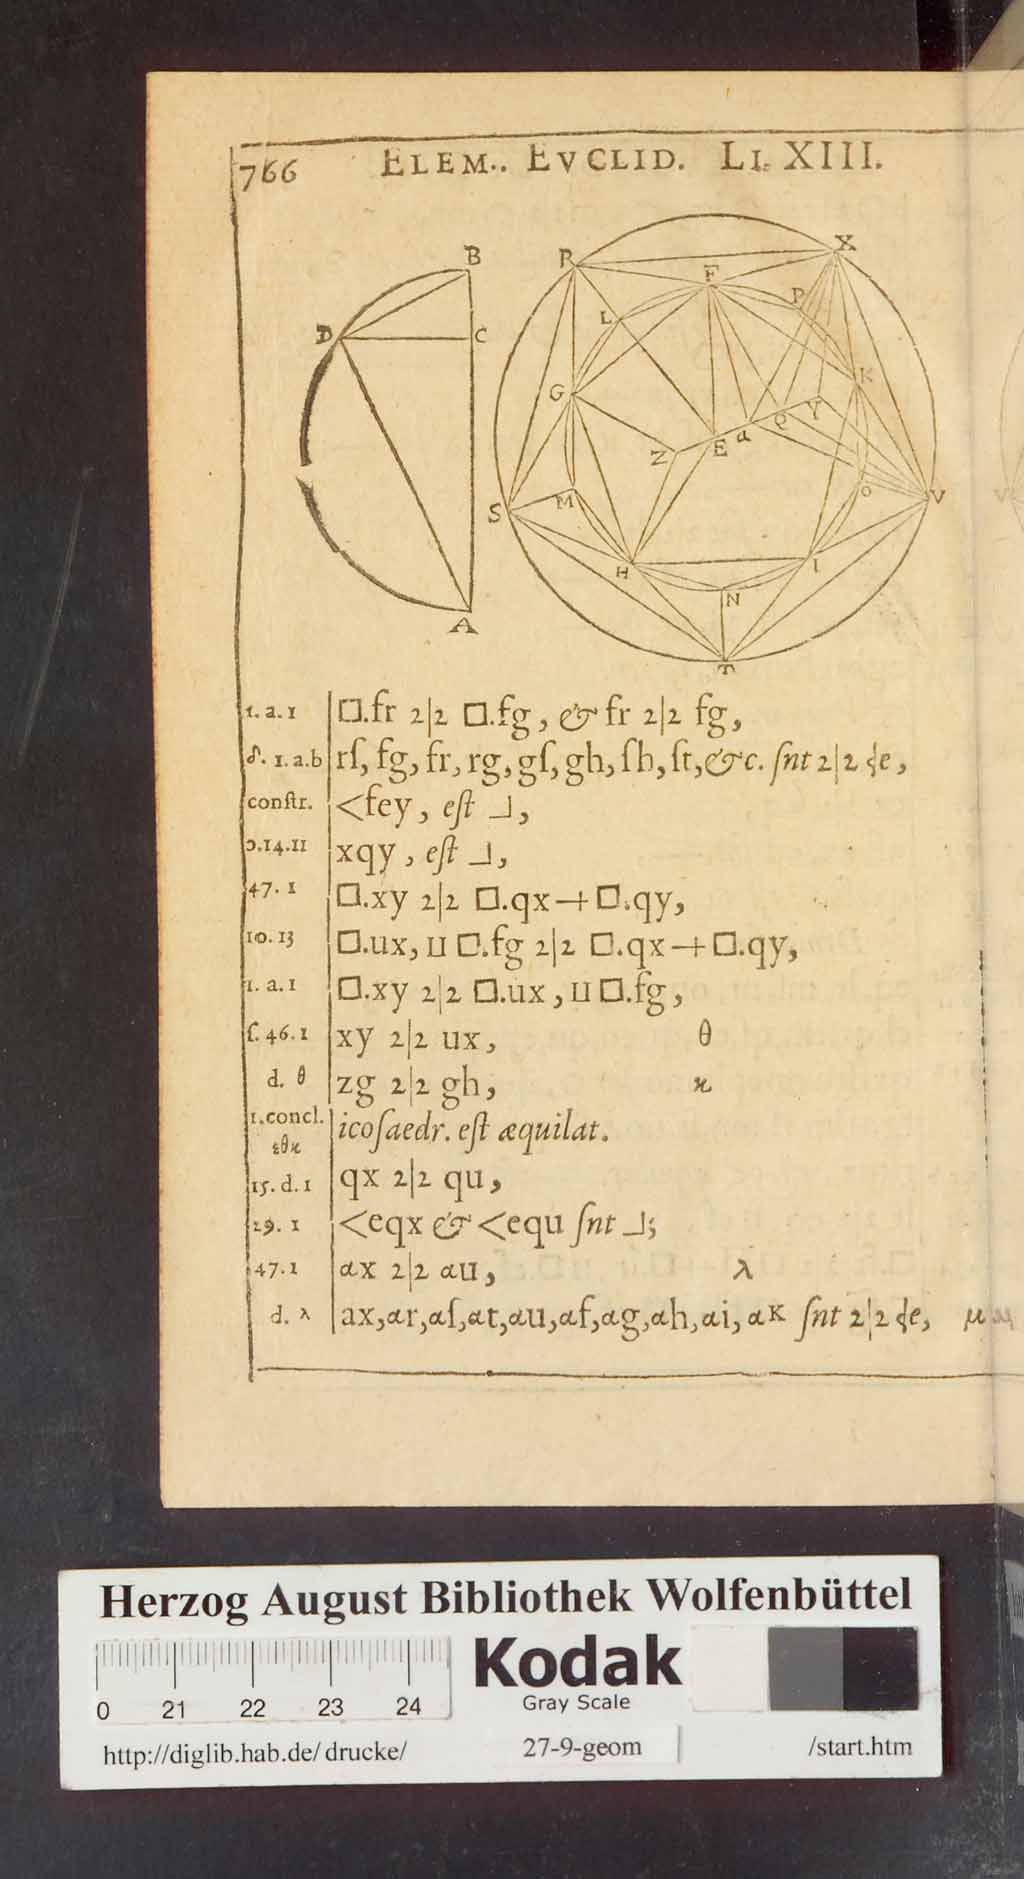 766 ELEM.. EVCLID. LI. XIII.
B
D
C
A
R
X
F
P
L
G
K
Y
Q
a
E
Z
M
O
S
V
H
I
N
T
1. a. 1 □.fr 2|2 □.fg, & fr 2|2 fg,
δ. 1. a. b rſ, fg, fr, rg, gſ, gh, ſh, ſt, &c. ſnt 2|2 ꝺe,
conſtr. <fey, eſt ⅃,
ɔ.14.11 xqy, eſt ⅃,
47. 1 □.xy 2|2 □.qx + □.qy,
10. 13 □.ux, ⊔ □.fg 2|2 □.qx + □.qy,
1. a. 1 □.xy 2|2 □.ux, ⊔ □.fg,
ſ. 46. 1 xy 2|2 ux, θ
d. θ zg 2|2 gh, ϰ
1. concl. icoſaedr. eſt æquilat.
εθϰ
15. d. 1 qx 2|2 qu,
29. 1 <eqx & <equ ſnt ⅃;
47. 1 αx 2|2 αu, λ
d. λ ax, αr, αſ, αt, αu, αf, αg, αh, αi, αK ſnt 2|2 ꝺe, μ
Herzog August Bibliothek Wolfenbüttel
Kodak
Gray Scale
0 21 22 23 24
http://diglib.hab.de/drucke/ 27-9-geom /start.htm